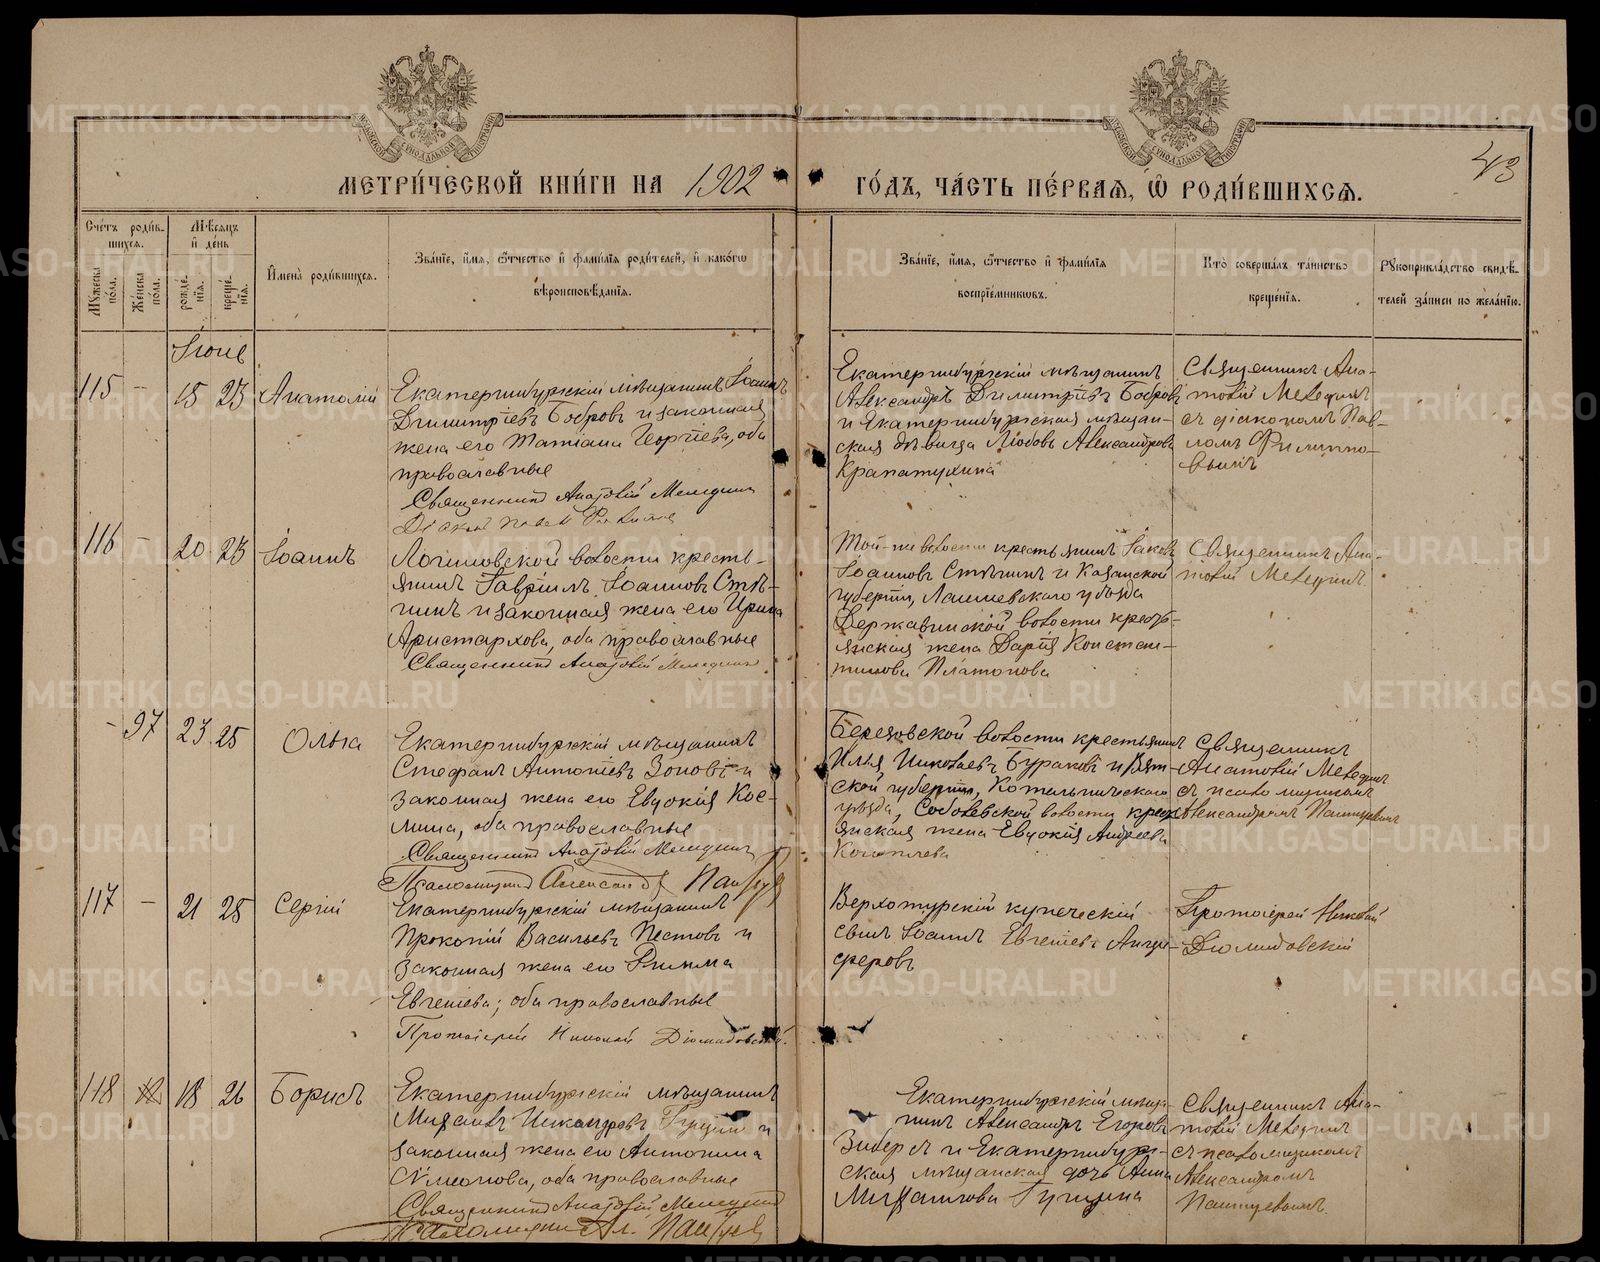 МЕТРИ́ЧЕСКОЙ КНИ́ГИ НА 1902
ГО́ДЪ, ЧА́СТЬ ПЕ́РВАѦ, Ѡ҆ РОДИ́ВШИХСѦ.
43
Сче́тъ роди́в-
шихсѧ.
Мꙋ́жеска по́ла.
Же́нска по́ла.
Мѣ́сѧцъ
и҆ де́нь
рожде́-
нїѧ.
креще́-
нїѧ.
И҆мена̀ роди́вшихсѧ.
Зва́нїе, и҆́мѧ, ѻ҆́тчество и҆ фами́лїѧ роди́телей, и҆ како́гѡ
вѣроисповѣ́данїѧ.
Зва́нїе, и҆́мѧ, ѻ҆́тчество и҆ фами́лїѧ
воспрїе́мникѡвъ.
Кто̀ соверша́лъ та́инство
креще́нїѧ.
Рꙋкоприкла́дство свидѣ́-
телей за́писи по жела́нїю.
Іюнь
115 - 15 23 Анатолій
Екатеринбургскій мѣщанинъ Іоаннъ
Димитріевъ Бобровъ и законная
жена его Татіана Георгіева, оба
православные
Священникъ Анатолій Меледин
Екатеринбургскій мѣщанинъ
Александръ Димитріевъ Бобровъ
и Екатеринбургская мѣщан-
ская дѣвица Любовь Александрова
Крапатухина
Священникъ Ана-
толій Мелединъ
съ діакономъ Пав-
ломъ Филиппо-
вымъ
116 - 20 23 Іоаннъ
Логиновской волости кресть-
янинъ Гавріилъ Іоанновъ Стѣ-
нинъ и законная жена его Ирина
Аристархова, оба православные
Священникъ Анатолій Меледин
Той-же волости крестьянинъ Іаковъ
Іоанновъ Стѣнинъ и Казанской
губерніи, Лаишевскаго уѣзда
Державинской волости кресть-
янская жена Дарія Констан-
тинова Платонова
Священникъ Ана-
толій Мелединъ
- 97 23 25 Ольга
Екатеринбургскій мѣщанинъ
Стефанъ Антоніевъ Зоновъ и
законная жена его Евдокія Кос-
мина, оба православные
Священникъ Анатолій Меледин
Псаломщикъ Александр
Березовской волости крестьянинъ
Илья Николаевъ Бураковъ и Вят-
ской губерніи, Котельническаго
уѣзда, Соболевской волости крест
янская жена Евдокія Андреева
Священникъ
Анатолій Мелединъ
съ псаломщикомъ
Александромъ
117 - 21 25 Сергій
Екатеринбургскій мѣщанинъ
Прокопій Васильевъ Пестовъ и
законная жена его Римма
Евгеніева; оба православные
Протоіерей Николай Діомидовскій.
Верхотурскій купеческій
сынъ Іоаннъ Евгеніевъ Анци-
феровъ
Протоіерей Николай
Діомидовскій
118 18 26 Борисъ
Екатеринбургскій мѣщанинъ
Михаилъ Никандровъ Гущин и
законная жена его Антонина
Сѵмеонова, оба православные
Священникъ Анатолій Меледин
Екатеринбургскій мѣща-
нинъ Александръ Егоровъ
Зибертъ и Екатеринбург-
ская мѣщанская дочь Анна
Михаилова Гущина
Священникъ Ана-
толій Мелединъ
съ псаломщикомъ
Александромъ
METRIKI.GASO-URAL.RU